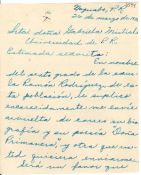 Yaguabo, P.R.
26 de marzo de 19
Srta. doña Gabriela Mistral
Universidad de P.R.
Estimada señorita:
En nombre
del sexto grado de la escue-
la Ramón Rodríguez, de es-
ta población, le suplico
encarecidamente me envíe
a vuelta de correo su bio-
grafía y su poesía "Doña
Primavera", y otra que us-
ted quisiera enviarme.
Será un favor que